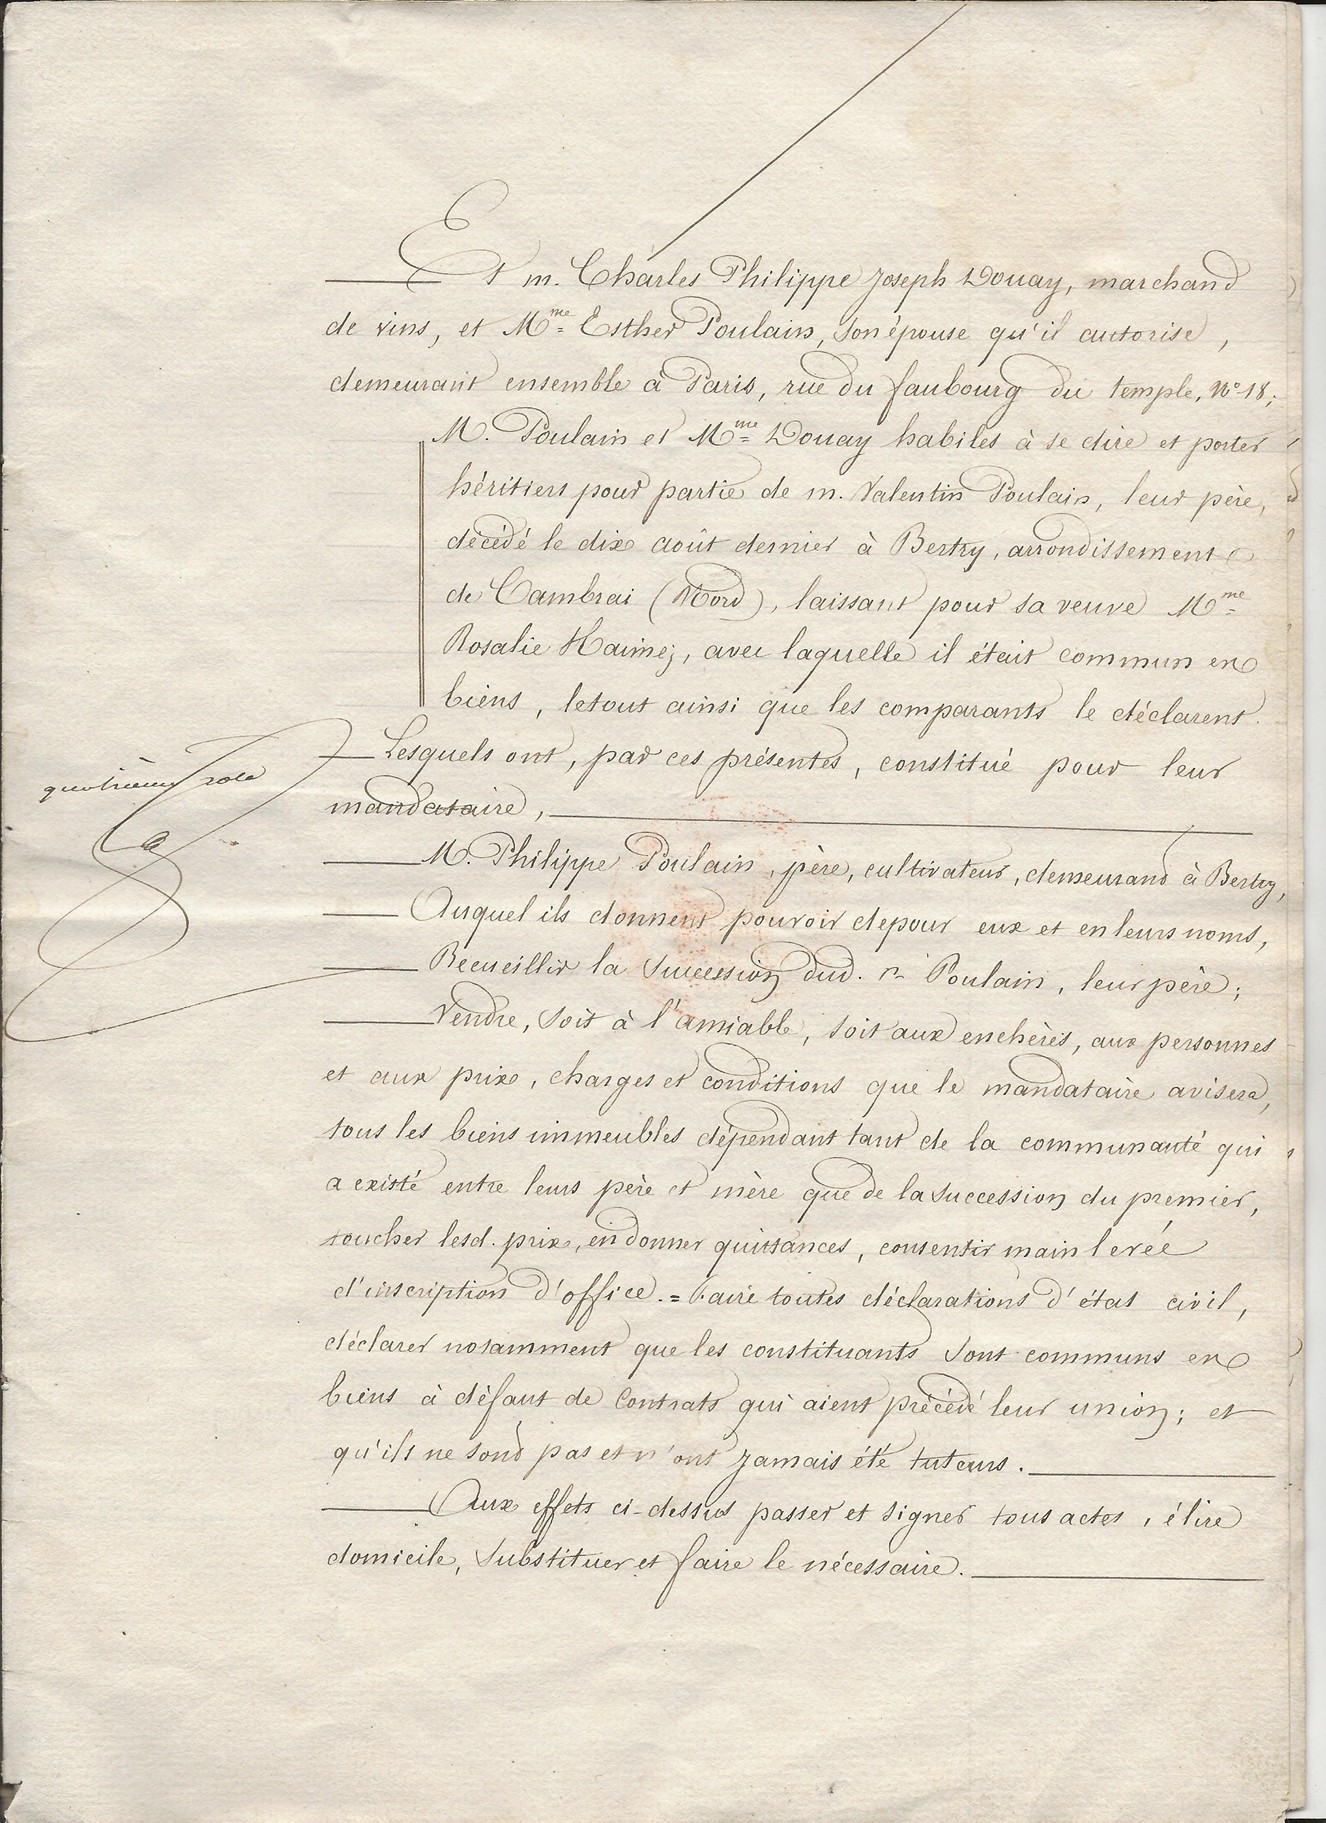 Et m. Charles Philippe Joseph Douay, marchand
de vins, et Mme Esther Poulain, son épouse qu'il autorise,
demeurant ensemble à Paris, rue du faubourg du temple, No 18;
M. Poulain et Mme Douay habiles à se dire et porter
héritiers pour partie de m. Valentin Poulain, leur père,
décédé le dix août dernier à Bertry, arrondissement
de Cambrai (Nord), laissant pour sa veuve Mme
Rosalie Haimez, avec laquelle il était commun en
biens, le tout ainsi que les comparants le déclarent.
Lesquels ont, par ces présentes, constitué pour leur
quatrième role
mandataire,
M. Philippe Poulain, père, cultivateur, demeurant à Bertry,
Auquel ils donnent pouvoir de pour eux et en leurs noms,
Recueillir la succession dud. Poulain, leur père;
Vendre, soit à l'amiable, soit aux enchères, aux personnes
et aux prix, charges et conditions que le mandataire avisera,
tous les biens immeubles dépendant tant de la communauté qui
a existé entre leurs père et mère que de la succession du premier,
toucher lesd. prix, en donner quittances, consentir main levée
d'inscription d'office. = Faire toutes déclarations d'état civil,
déclarer notamment que les constituants sont communs en
biens à défaut de contrats qui aient précédé leur union; et
qu'ils ne sont pas et n'ont jamais été tuteurs.
Aux effets ci-dessus passer et signer tous actes, élire
domicile, substituer et faire le nécessaire.